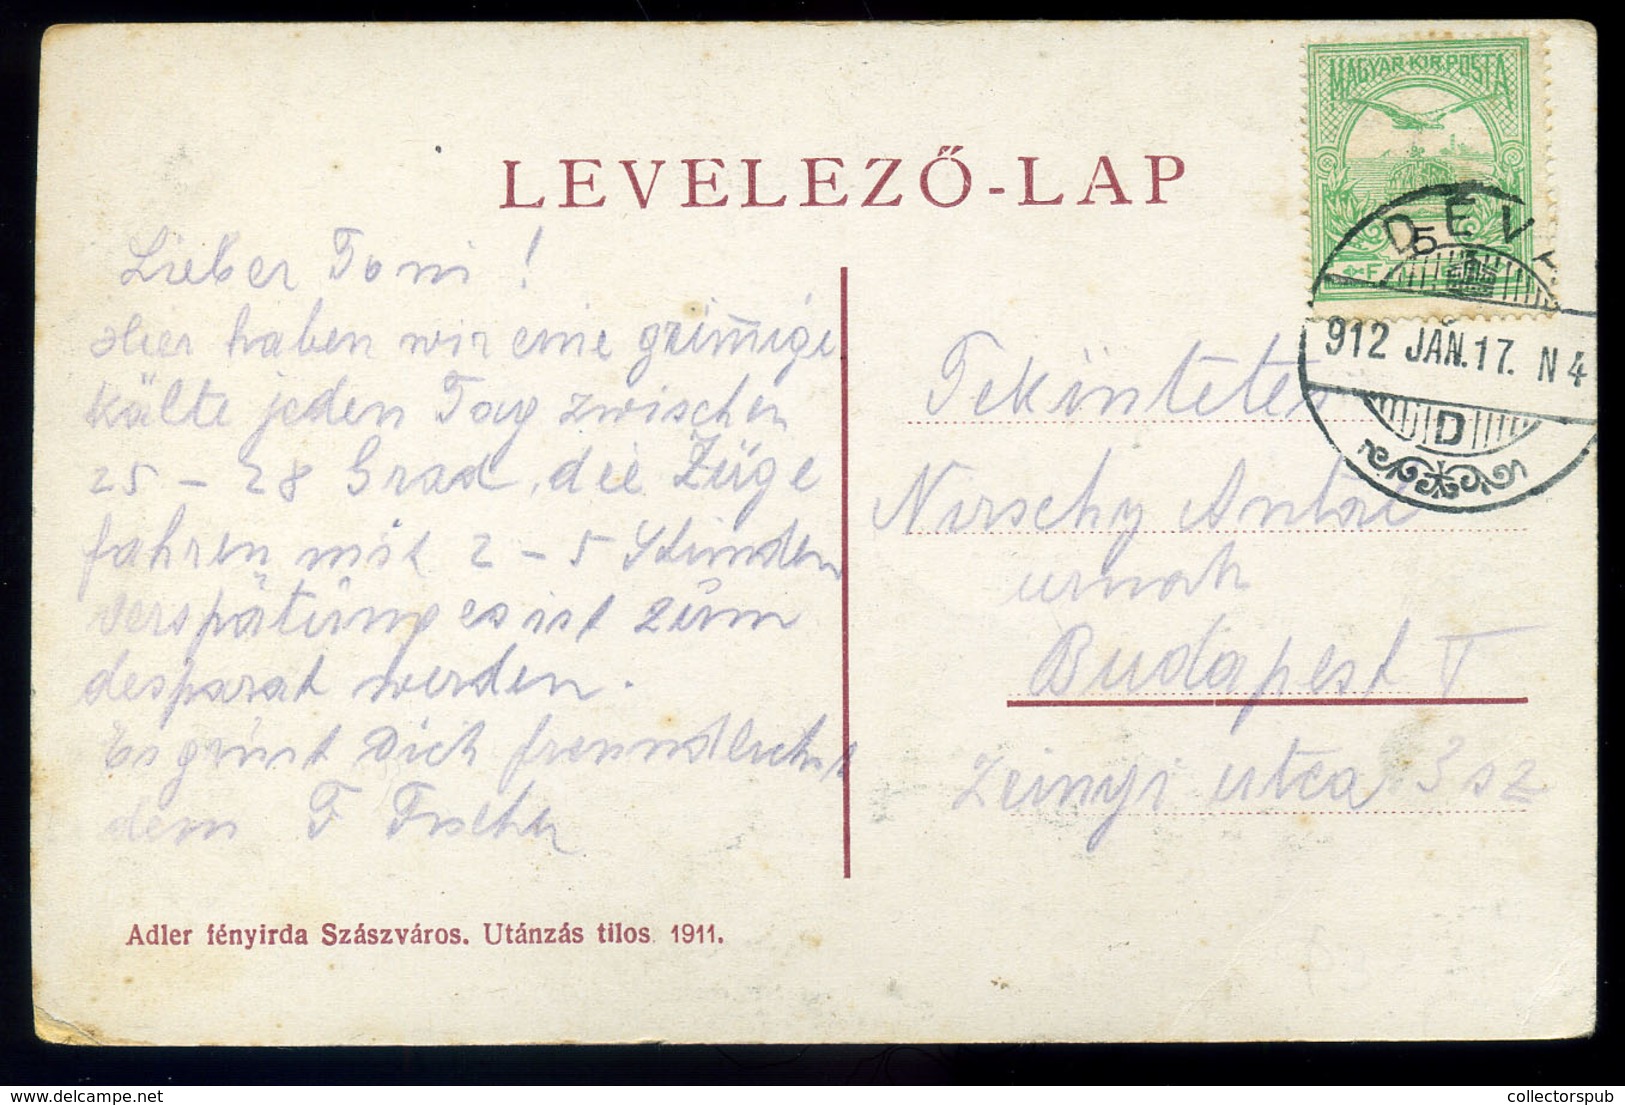 MAGYAR·KIR.POSTA
LEVELEZŐ-LAP
DÉVA
5
912 JAN.17. N4
D
Lieber Toni!
Hier haben wir eine grimmige
Kälte jeden Tag zwischen
25 – 28 Grad, die Züge
fahren mit 2 – 5 Stunden
verspätung es ist zum
desparat werden.
Es grüsst Dich freundlichst
dem F Fischer
Tekintetes
Nirschy Antal
urnak
Budapest V
Zrinyi utca 3 sz
Adler fényirda Szászváros. Utánzás tilos 1911.
collectorspub